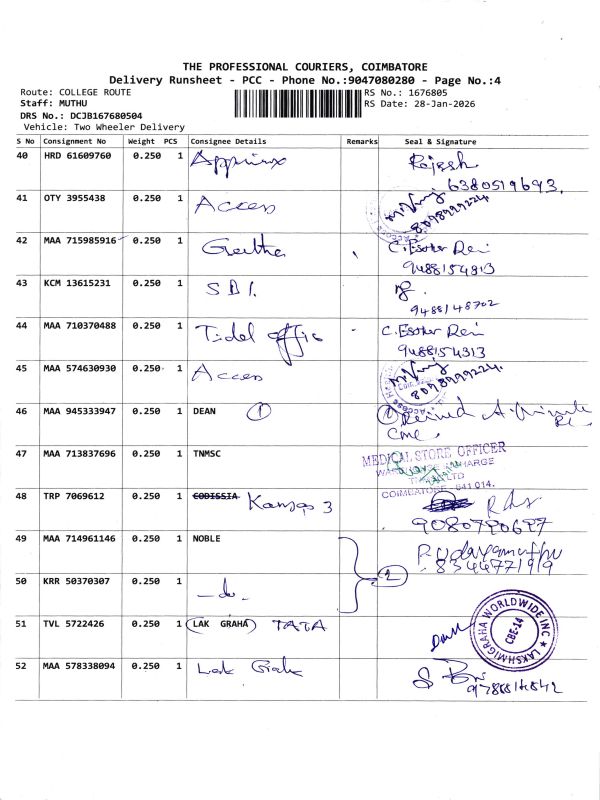 THE PROFESSIONAL COURIERS, COIMBATORE
Delivery Runsheet - PCC - Phone No.:9047080280 - Page No.:4
Route: COLLEGE ROUTE RS No.: 1676805
Staff: MUTHU RS Date: 28-Jan-2026
DRS No.: DCJB167680504
Vehicle: Two Wheeler Delivery
S No Consignment No Weight PCS Consignee Details Remarks Seal & Signature
40 HRD 61609760 0.250 1 Rajesh
6380519693.
41 OTY 3955438 0.250 1 Access
8098999224
42 MAA 715985916 0.250 1 Geetha C. Esther Rani
9488154313
43 KCM 13615231 0.250 1 SBI.
9488148702
44 MAA 710370488 0.250 1 Tidel offic C. Esther Rani
9488154313
45 MAA 574630930 0.250 1 Access
8098999224.
46 MAA 945333947 0.250 1 DEAN 1 Received
CMC.
47 MAA 713837696 0.250 1 TNMSC MEDICAL STORE OFFICER
COIMBATORE - 641 014.
48 TRP 7069612 0.250 1 CODISSIA 3
9080790697
49 MAA 714961146 0.250 1 NOBLE
8344771919
50 KRR 50370307 0.250 1 -do- 2
51 TVL 5722426 0.250 1 LAK GRAHA TATA
LAKSHMIGRAHA WORLDWIDE INC
CBE-14
52 MAA 578338094 0.250 1 Lak Grah